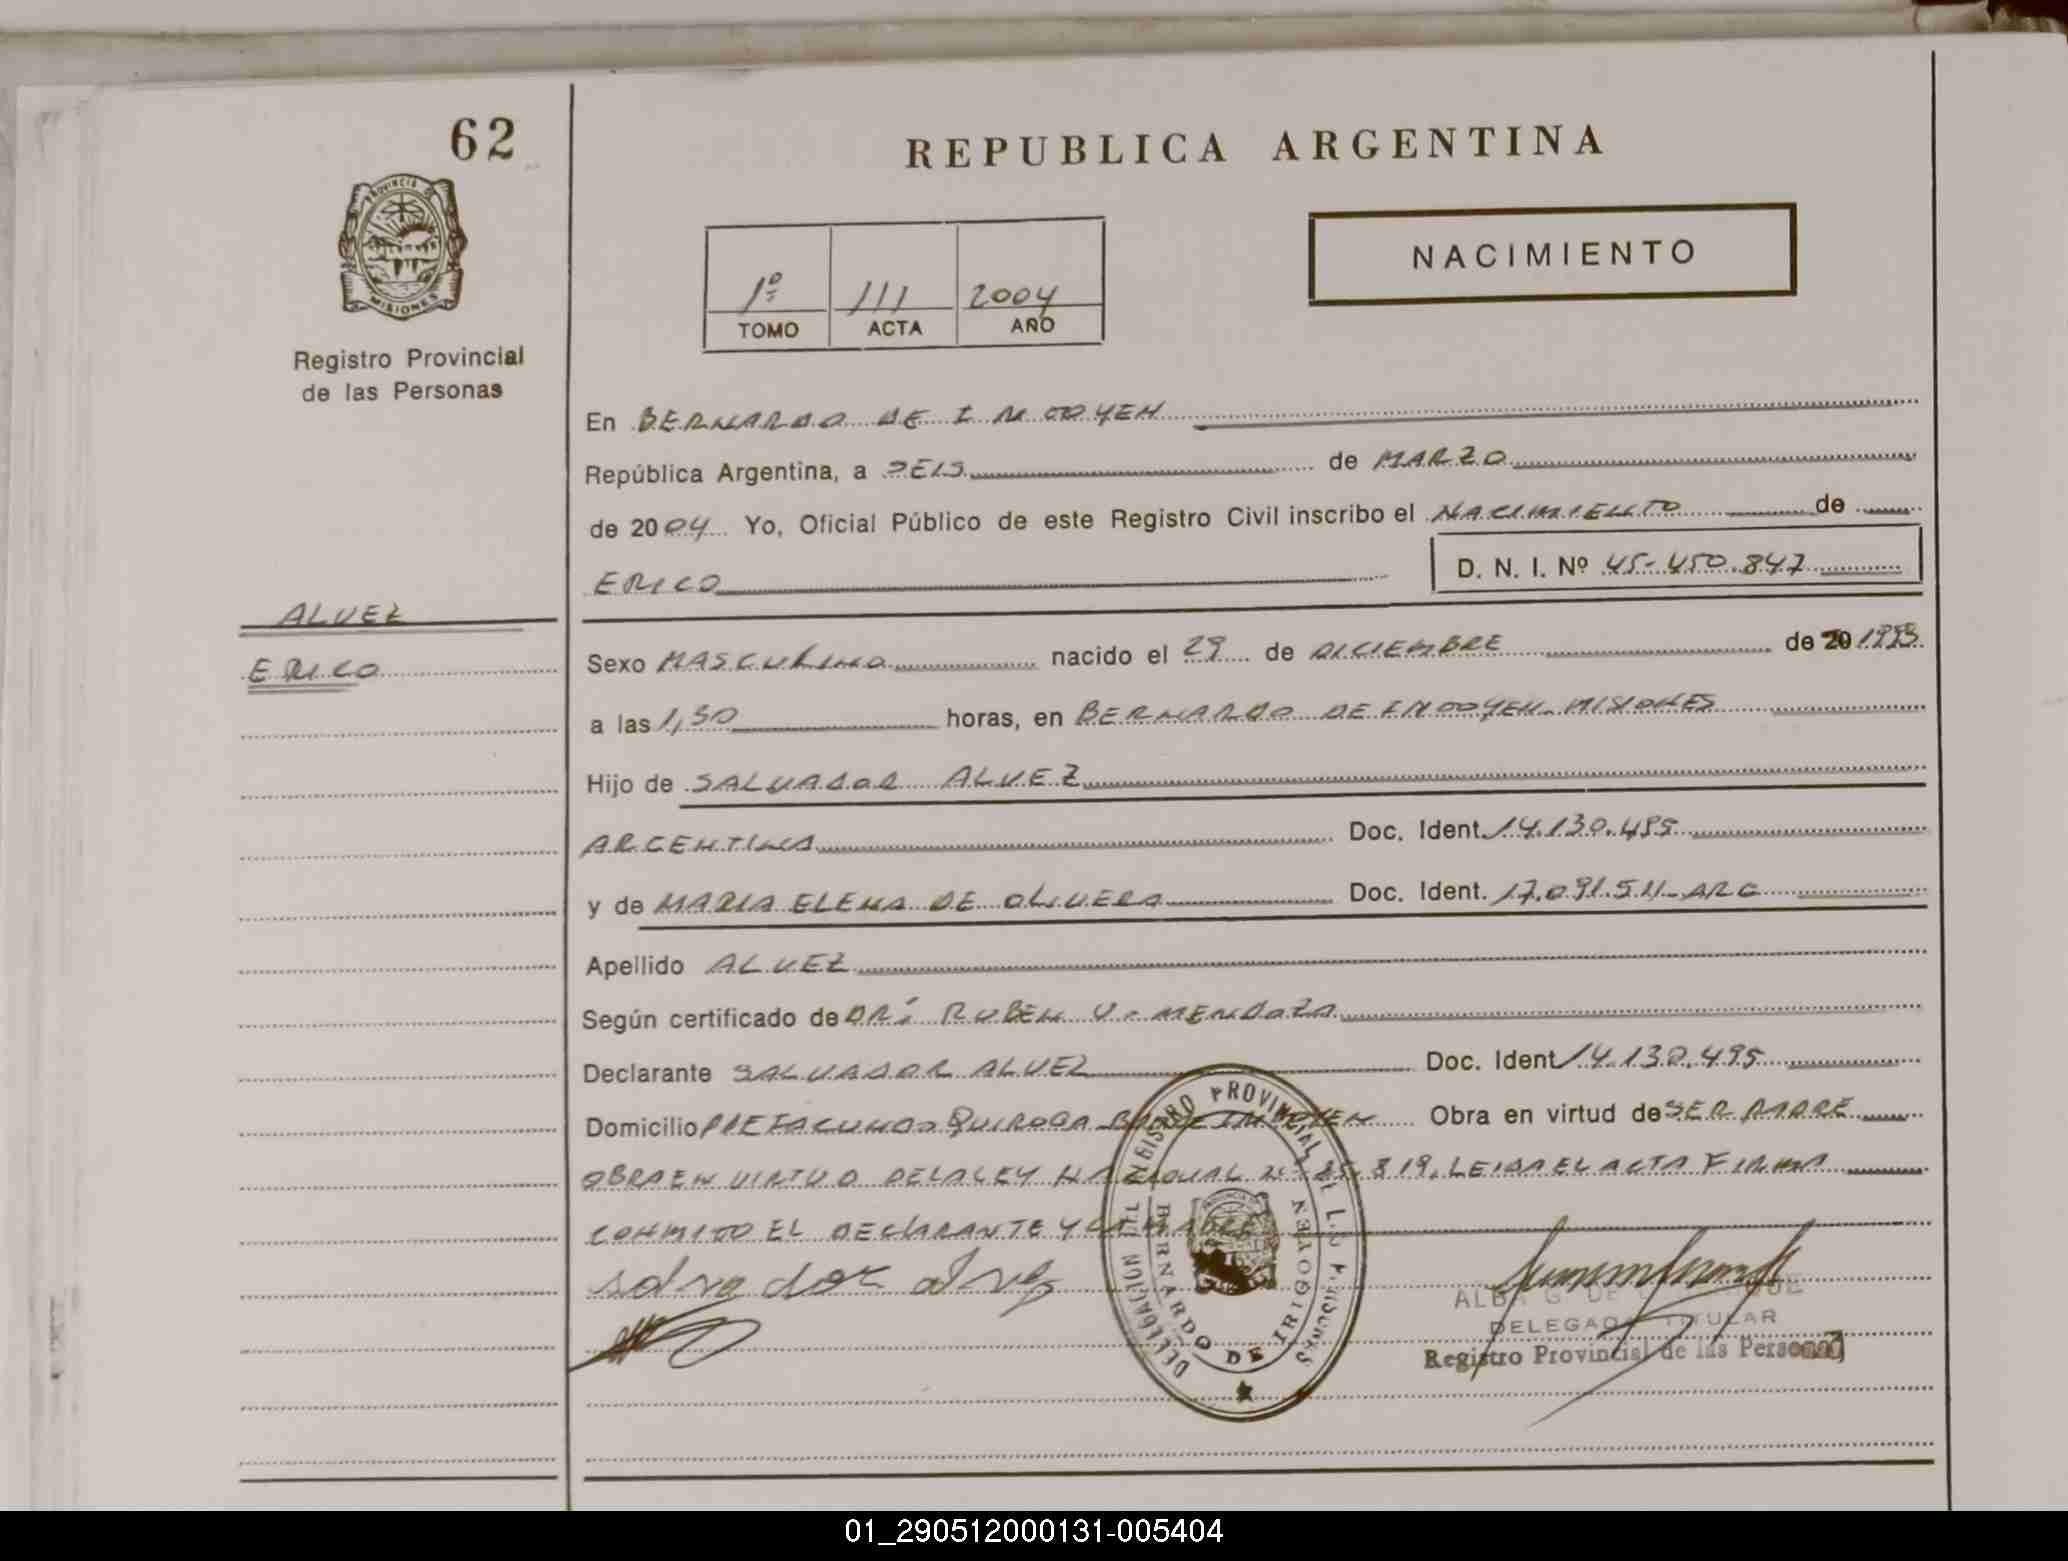 62
REPUBLICA ARGENTINA
PROVINCIA DE MISIONES
NACIMIENTO
1º 111 2004
TOMO ACTA AÑO
Registro Provincial
de las Personas
En BERNARDO DE IRIGOYEN
República Argentina, a SEIS de MARZO
de 2004 Yo, Oficial Público de este Registro Civil inscribo el NACIMIENTO de
ERICO D. N. I. Nº 45-450.847
ALVEZ
ERICO
Sexo MASCULINO nacido el 29 de DICIEMBRE de 20 1993
a las 1,30 horas, en BERNARDO DE IRIGOYEN MISIONES
Hijo de SALVADOR ALVEZ
ARGENTINA Doc. Ident. 14.130.495
y de MARIA ELENA DE OLIVERA Doc. Ident. 17.091.511-ARG
Apellido ALVEZ
Según certificado de DR: RUBEN V. MENDOZA
Declarante SALVADOR ALVEZ Doc. Ident 14.130.495
Domicilio FACUNDO QUIROGA Obra en virtud de SER PADRE
OBRA EN VIRTUD DE LA LEY NACIONAL Nº 25.819. LEIDA EL ACTA FIRMA
CONMIGO EL DECLARANTE Y LA MADRE
salvador alvez
DELEGACION DEL REGISTRO PROVINCIAL DE LAS PERSONAS
BERNARDO DE IRIGOYEN
ALBA G. DE
DELEGADA TITULAR
Registro Provincial de las Personas
01_290512000131-005404